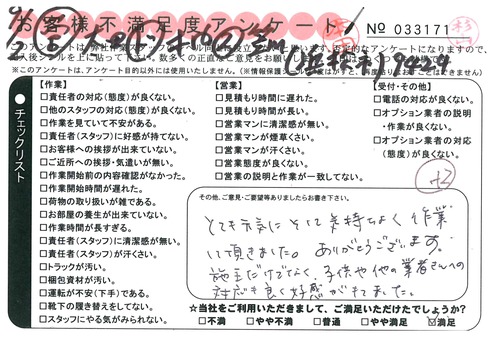 お客様不満足度アンケート
No 033171
チェックリスト
【作業】
□責任者の対応(態度)が良くない。
□他のスタッフの対応(態度)が良くない。
□作業を見ていて不安がある。
□責任者(スタッフ)に好感が持てない。
□お客様への挨拶が出来ていない。
□ご近所への挨拶・気遣いが無い。
□作業開始前の内容確認がなかった。
□作業開始時間が遅れた。
□荷物の取り扱いが雑である。
□お部屋の養生が出来ていない。
□作業時間が長すぎる。
□責任者(スタッフ)に清潔感が無い。
□責任者(スタッフ)が汗くさい。
□トラックが汚い。
□梱包資材が汚い。
□運転が不安(下手)である。
□靴下の履き替えをしてない。
□スタッフにやる気がみられない。
【営業】
□見積もり時間に遅れた。
□見積もり時間が長い。
□営業マンに清潔感が無い。
□営業マンが煙草くさい。
□営業マンが汗くさい。
□営業態度が良くない。
□営業の説明と作業が一致してない。
【受付・その他】
□電話の対応が良くない。
□オプション業者の説明
・作業が良くない。
□オプション業者の対応
(態度)が良くない。
+2
その他、ご意見・ご要望等ありましたらお書き下さい。
とても元気にそして気持ちよく作業
して頂きました。ありがとうございます。
施主だけでなく、子供や他の業者さんへの
対応も良く好感がもてました。
☆当社をご利用いただきまして、ご満足いただけたでしょうか?
□不満 □やや不満 □普通 □やや満足 ☑満足